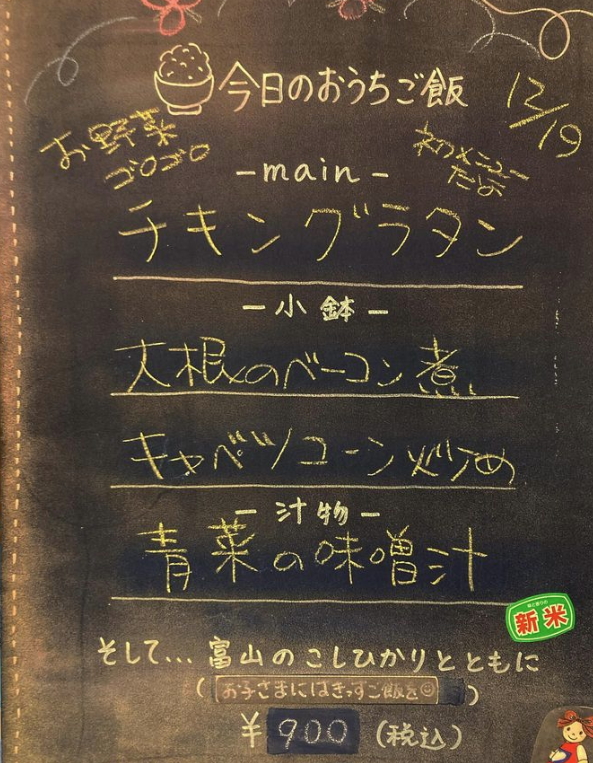 今日のおうちご飯
12/19
お野菜
ゴロゴロ
初メニュー
だよ
-main-
チキングラタン
-小鉢-
大根のベーコン煮
キャベツコーン炒め
-汁物-
青菜の味噌汁
新米
そして...富山のこしひかりとともに
(お子さまにはきっずご飯を☺)
¥900(税込)